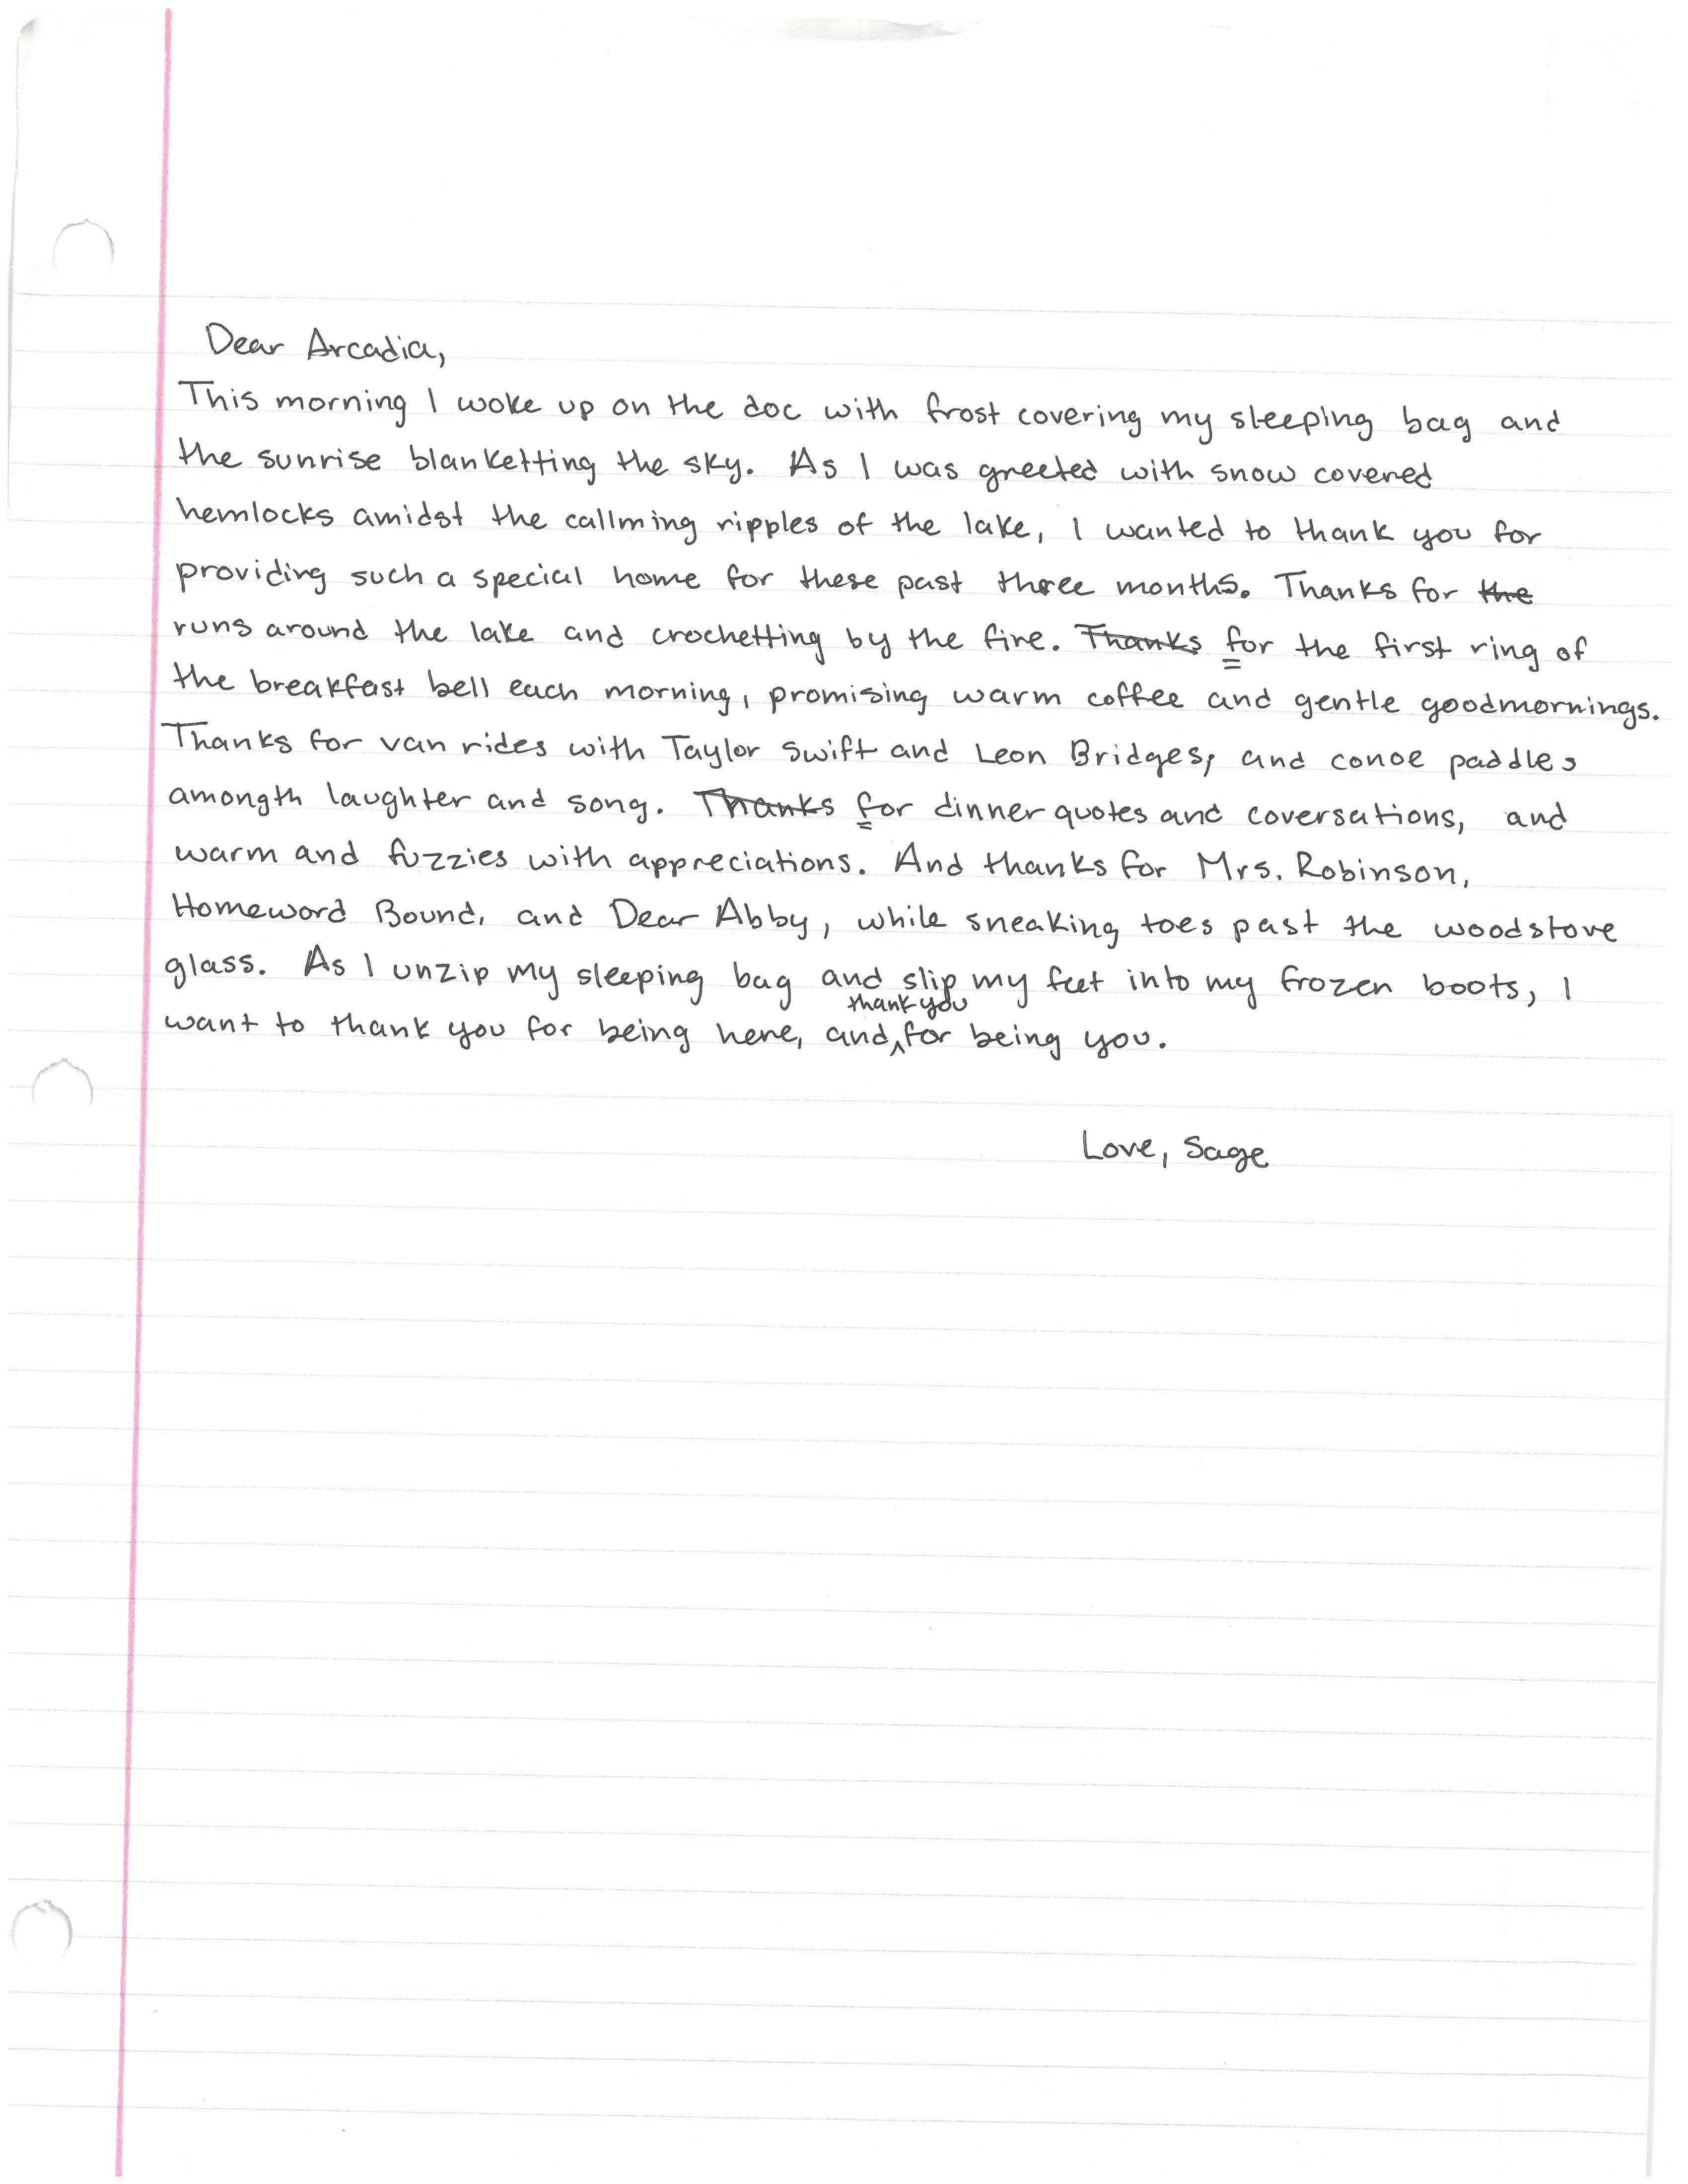 Dear Arcadia,
This morning I woke up on the doc with frost covering my sleeping bag and
the sunrise blanketting the sky. As I was greeted with snow covered
hemlocks amidst the callming ripples of the lake, I wanted to thank you for
providing such a special home for these past three months. Thanks for ~~the~~
runs around the lake and crochetting by the fire. ~~Thanks~~ for the first ring of
the breakfast bell each morning, promising warm coffee and gentle goodmornings.
Thanks for van rides with Taylor Swift and Leon Bridges, and conoe paddles
amongth laughter and song. ~~Thanks~~ for dinner quotes and coversations, and
warm and fuzzies with appreciations. And thanks for Mrs. Robinson,
Homeword Bound, and Dear Abby, while sneaking toes past the woodstove
glass. As I unzip my sleeping bag and slip my feet into my frozen boots, I
thank you
want to thank you for being here, and ^ for being you.
Love, Sage